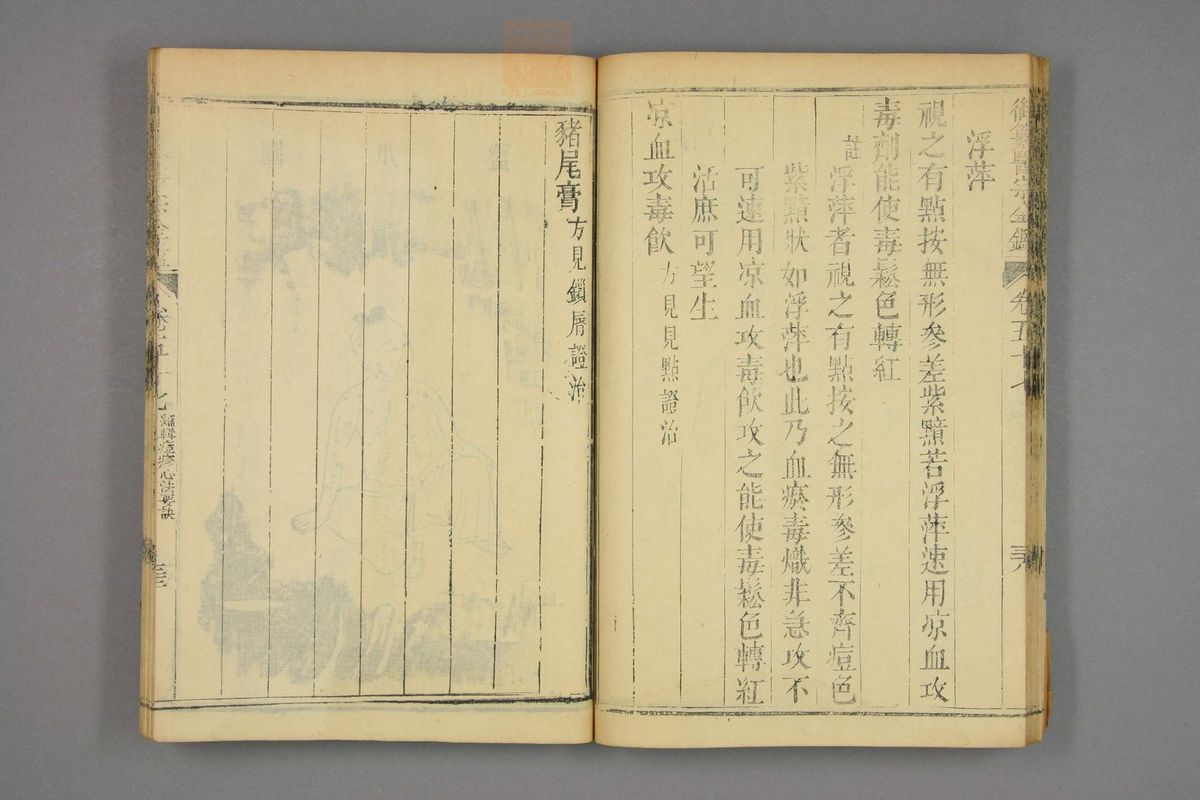 御纂醫宗金鑑 卷五十七
浮萍
視之有點按無形參差紫黯若浮萍速用凉血攻
毒劑能使毒鬆色轉紅
註
浮萍者視之有點按之無形參差不齊痘色
紫黯狀如浮萍也此乃血瘀毒熾非急攻不
可速用凉血攻毒飲攻之能使毒鬆色轉紅
活庶可望生
凉血攻毒飲 方見見點證治
豬尾膏 方見鎖脣證治
卷五十七 編輯痘疹心法要訣